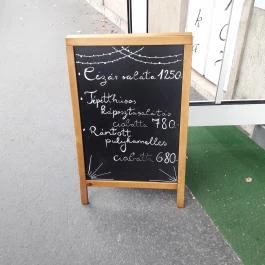 • Cézár saláta 1250
• Tépetthúsos
káposztasalátás
ciabatta 780.-
• Rántott
pulykamelles
ciabatta 680.-